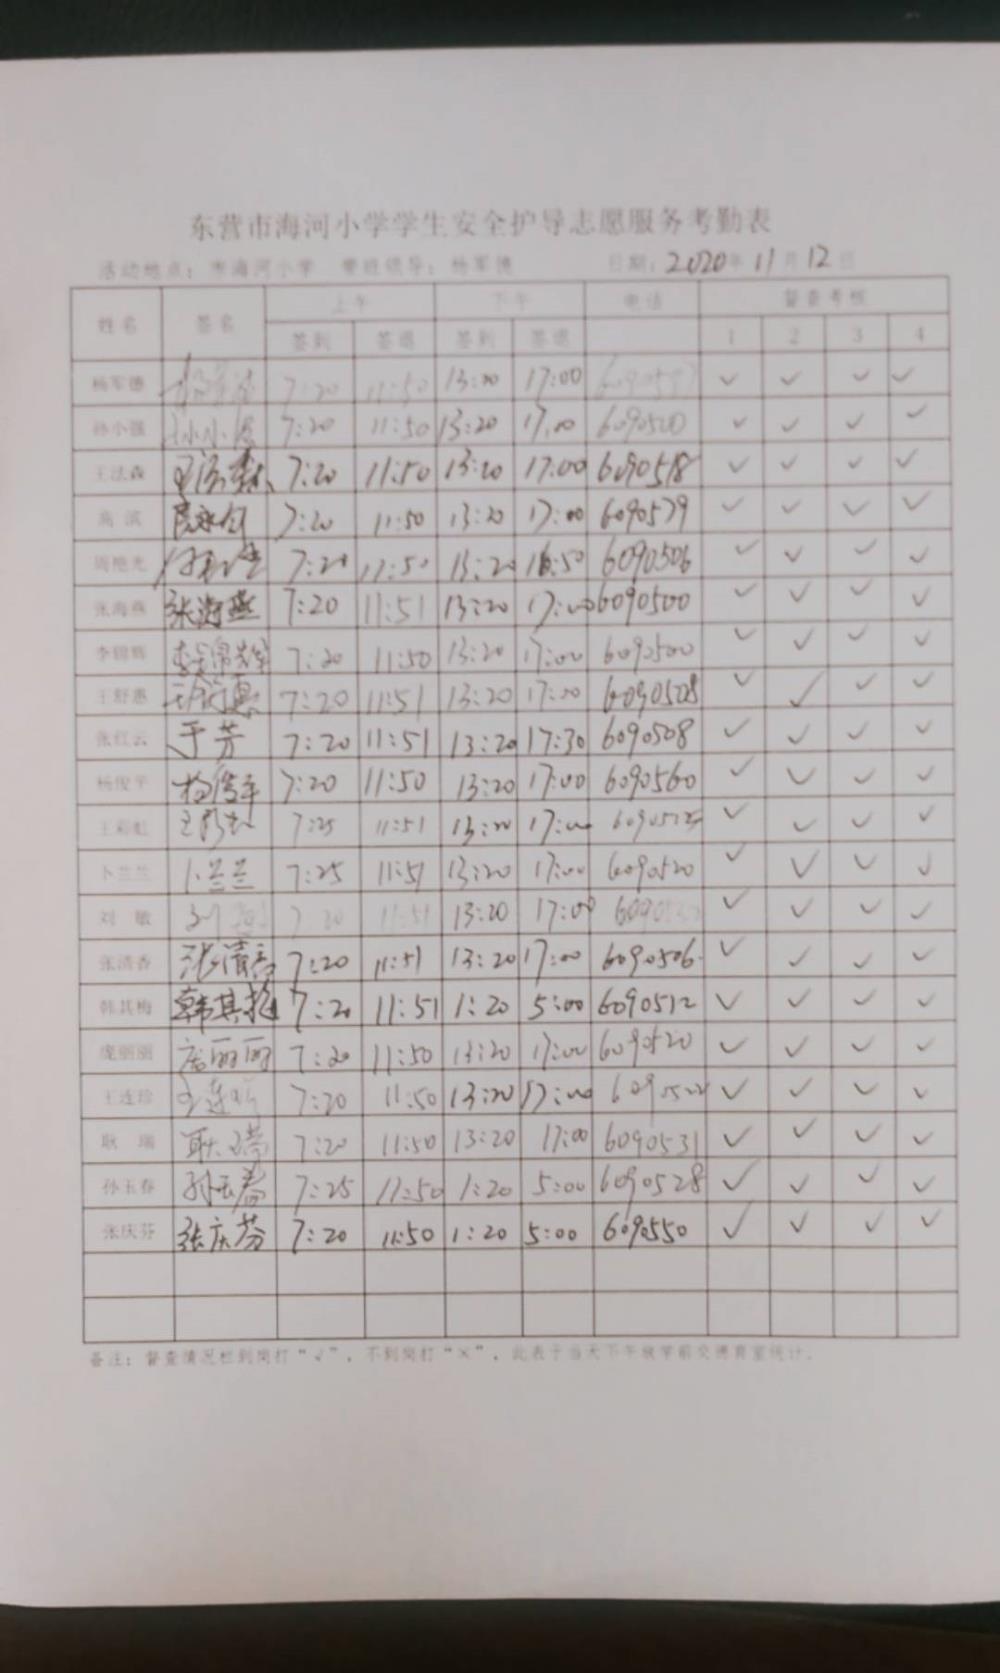 东营市海河小学学生安全护导志愿服务考勤表
活动地点：市海河小学 带班领导：杨军德 日期：2020年11月12日
姓名 签名 上午 下午 电话 督查考核
签到 签退 签到 签退 1 2 3 4
杨军德 7:20 11:50 13:20 17:00 ✓ ✓ ✓ ✓
孙小强 孙小强 7:20 11:50 13:20 17:00 6090500 ✓ ✓ ✓ ✓
王法森 王法森 7:20 11:50 13:20 17:00 6090518 ✓ ✓ ✓ ✓
高滨 7:20 11:50 13:20 17:00 6090579 ✓ ✓ ✓ ✓
周艳光 7:20 11:50 13:20 16:50 6090506 ✓ ✓ ✓ ✓
张海燕 张海燕 7:20 11:51 13:20 17:00 6090500 ✓ ✓ ✓ ✓
李锦辉 李锦辉 7:20 11:50 13:20 17:00 6090500 ✓ ✓ ✓ ✓
王舒惠 王舒惠 7:20 11:51 13:20 17:00 6090528 ✓ ✓ ✓ ✓
张红云 于芳 7:20 11:51 13:20 17:30 6090508 ✓ ✓ ✓ ✓
杨俊平 杨俊平 7:20 11:50 13:20 17:00 6090560 ✓ ✓ ✓ ✓
王彩虹 王彩虹 7:25 11:51 13:20 17:00 ✓ ✓ ✓ ✓
卜兰兰 卜兰兰 7:25 11:51 13:20 17:00 6090520 ✓ ✓ ✓ ✓
刘敏 刘敏 7:20 11:51 13:20 17:00 ✓ ✓ ✓ ✓
张清香 张清香 7:20 11:51 13:20 17:00 6090506 ✓ ✓ ✓ ✓
韩其梅 韩其梅 7:20 11:51 1:20 5:00 6090512 ✓ ✓ ✓ ✓
庞丽丽 庞丽丽 7:20 11:50 13:20 17:00 6090520 ✓ ✓ ✓ ✓
王连珍 王连珍 7:20 11:50 13:20 17:00 ✓ ✓ ✓ ✓
耿瑞 耿瑞 7:20 11:50 13:20 17:00 6090531 ✓ ✓ ✓ ✓
孙玉春 孙玉春 7:25 11:50 1:20 5:00 6090528 ✓ ✓ ✓ ✓
张庆芬 张庆芬 7:20 11:50 1:20 5:00 609550 ✓ ✓ ✓ ✓
备注：督查情况栏到岗打“√”，不到岗打“×”，此表于当天下午放学前交德育室统计。